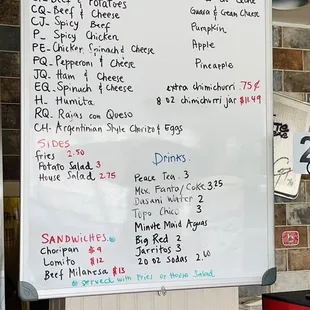 & Potatoes
CQ- Beef & Cheese
CJ- Spicy Beef
P- Spicy Chicken
PE- Chicken Spinach & Cheese
PQ- Pepperoni & Cheese
JQ- Ham & Cheese
EQ- Spinach & Cheese
H- Humita
RQ- Rajas con Queso
CH- Argentinian Style Chorizo & Eggs
Guava & Cream Cheese
Pumpkin
Apple
Pineapple
extra chimichurri .75¢
8 oz chimichurri jar $11.49
SIDES
fries 2.50
Potato Salad 3
House Salad 2.75
Drinks
Peace Tea . 3
Mex. Fanta/Coke 3.25
Dasani Water 2
Topo Chico 3
Minute Maid Aguas
Big Red 2
Jarritos 3
20 oz Sodas 2.60
SANDWICHES
Choripan $9
Lomito $12
Beef Milanesa $13
* served with Fries or House Salad
2